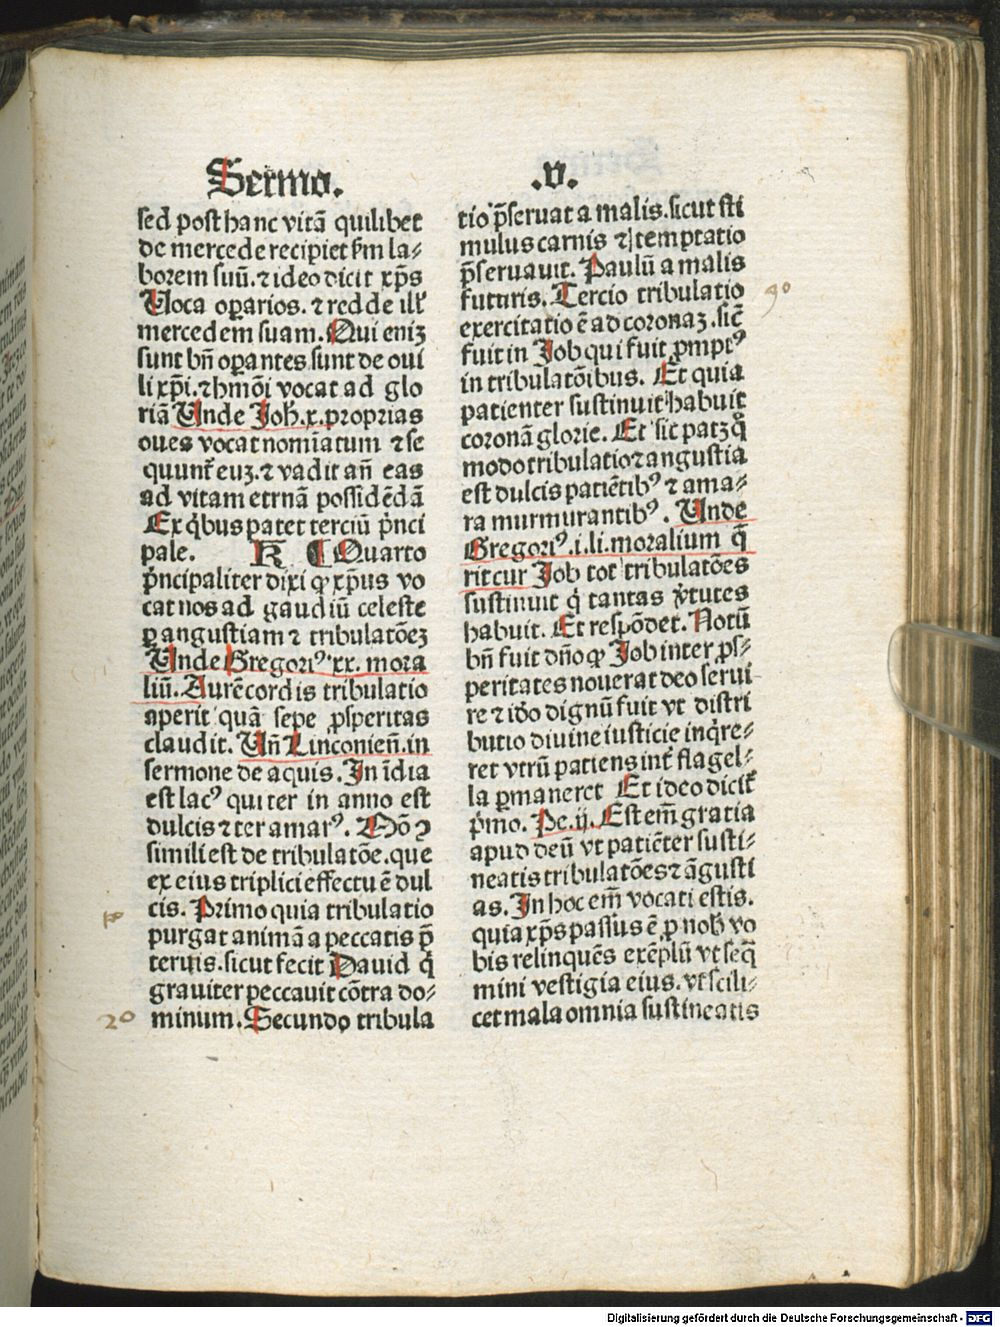 Sermo.
.v.
sed post hanc vitã quilibet
de mercede recipiet ẜm la⸗
borem suũ. ⁊ ideo dicit xp̃s
Voca oꝑarios. ⁊ redde ill'
mercedem suam. Qui eniꝫ
sunt bñ oꝑantes sunt de oui
li xp̃i. ⁊ hmõi vocat ad glo
riã Unde Joh̃.x. proprias
oues vocat nomĩatum ⁊ se
quunt̃ euꝫ. ⁊ vadit añ eas
ad vitam etrnã possidẽdã
Ex q̃bus patet terciũ p̃nci
pale. K ¶ Quarto
p̃ncipaliter dixi ꝙ xp̃us vo
cat nos ad gaudiũ celeste
ꝑ angustiam ⁊ tribulatõeꝫ
Unde Gregoriꝰ xx. mora
liũ. Aurẽ cordis tribulatio
aperit quã sepe ꝓsperitas
claudit. Uñ Linconieñ. in
sermone de aquis. In ĩdia
est lacꝰ qui ter in anno est
dulcis ⁊ ter amarꝰ. Mõ ꝯ
simili est de tribulatõe. que
ex eius triplici effectu ẽ dul
cis. Primo quia tribulatio
purgat animã a peccatis p̃
teritis. sicut fecit Dauid q̃
grauiter peccauit cõtra do⸗
minum. Secundo tribula
tio p̃seruat a malis. sicut sti
mulus carnis ⁊ temptatio
p̃seruauit. Paulũ a malis
futuris. Tercio tribulatio
exercitatio ẽ ad coronaꝫ. sic̃
fuit in Job qui fuit ꝓmptꝰ
in tribulatõibus. Et quia
patienter sustinuit habuit
coronã glorie. Et sic patꝫ q̃
modo tribulatio ⁊ angustia
est dulcis patiẽtibꝰ ⁊ ama⸗
ra murmurantibꝰ. Unde
Gregoriꝰ.i.li.moralium q̃
ritcur Job tot tribulatões
sustinuit q̃ tantas ṽtutes
habuit. Et respõdet. Notũ
bñ fuit dño ꝙ Job inter ꝓs⸗
peritates nouerat deo serui
re ⁊ iõo dignũ fuit vt distri
butio diuine iusticie inq̃re⸗
ret vtrũ patiens int̃ flagel⸗
la ꝑmaneret Et ideo dicit̃
p̃mo. Pe.ij. Est em̃ gratia
apud deũ vt patiẽter susti⸗
neatis tribulatões ⁊ ãgusti
as. In hoc em̃ vocati estis.
quia xp̃s passus ẽ ꝓ nob̃ vo
bis relinquẽs exẽplũ vt seq̃
mini vestigia eius. vt scili⸗
cet mala omnia sustineatis
pº
2º
3º
Digitalisierung gefördert durch die Deutsche Forschungsgemeinschaft - DFG